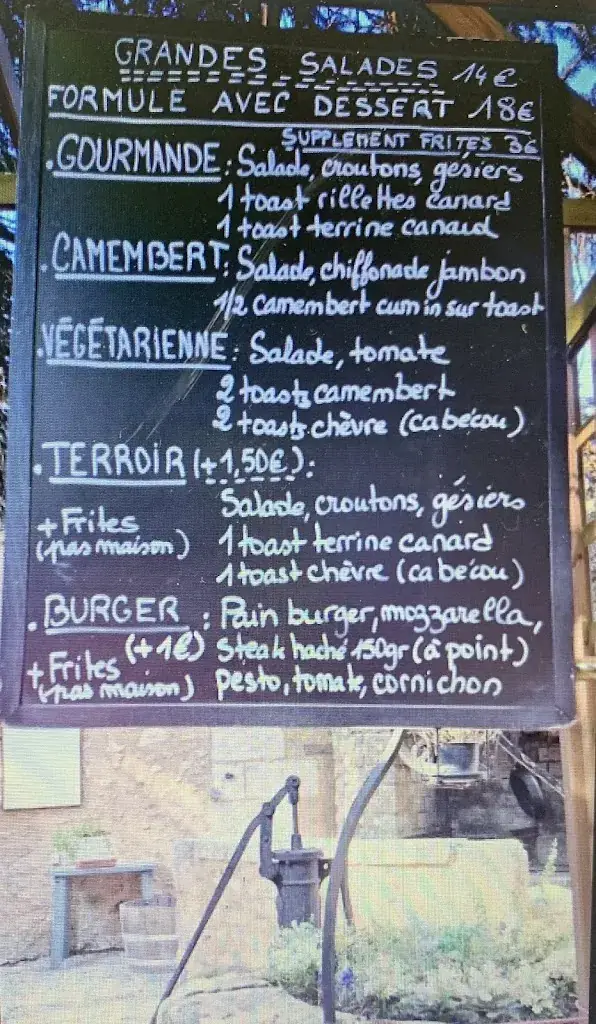 GRANDES SALADES 14€
FORMULE AVEC DESSERT 18€
SUPPLEMENT FRITES 3€
.GOURMANDE: Salade, croutons, gésiers
1 toast rillettes canard
1 toast terrine canard
.CAMEMBERT: Salade, chiffonade jambon
1/2 camembert cumin sur toast
.VÉGÉTARIENNE: Salade, tomate
2 toasts camembert
2 toasts chèvre (cabécou)
.TERROIR (+1,50€):
Salade, croutons, gésiers
+Frites
(pas maison) 1 toast terrine canard
1 toast chèvre (cabécou)
.BURGER : Pain burger, mozzarella,
(+1€) Steak haché 150gr (à point)
+Frites
(pas maison) pesto, tomate, cornichon